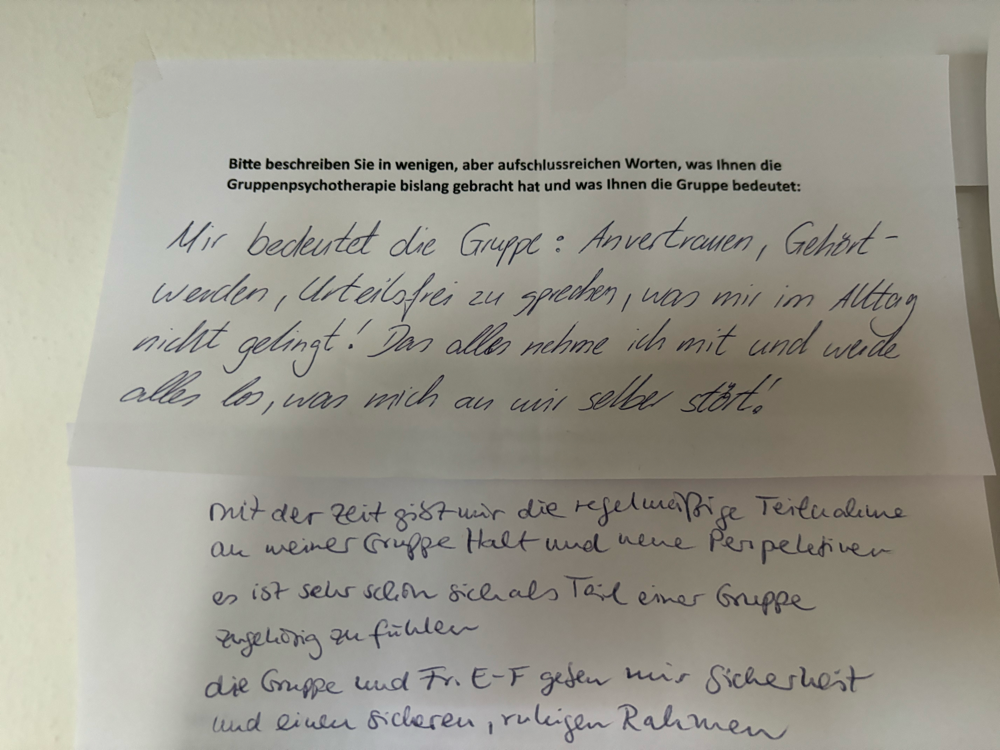 Bitte beschreiben Sie in wenigen, aber aufschlussreichen Worten, was Ihnen die
Gruppenpsychotherapie bislang gebracht hat und was Ihnen die Gruppe bedeutet:
Mir bedeutet die Gruppe: Anvertrauen, Gehört-
werden, Urteilsfrei zu sprechen, was mir im Alltag
nicht gelingt! Das alles nehme ich mit und werde
alles los, was mich an mir selber stört!
mit der Zeit gibt mir die regelmäßige Teilnahme
an meiner Gruppe Halt und neue Perspektiven
es ist sehr schön sich als Teil einer Gruppe
zugehörig zu fühlen
die Gruppe und Fr. E-F geben mir Sicherheit
und einen sicheren, ruhigen Rahmen